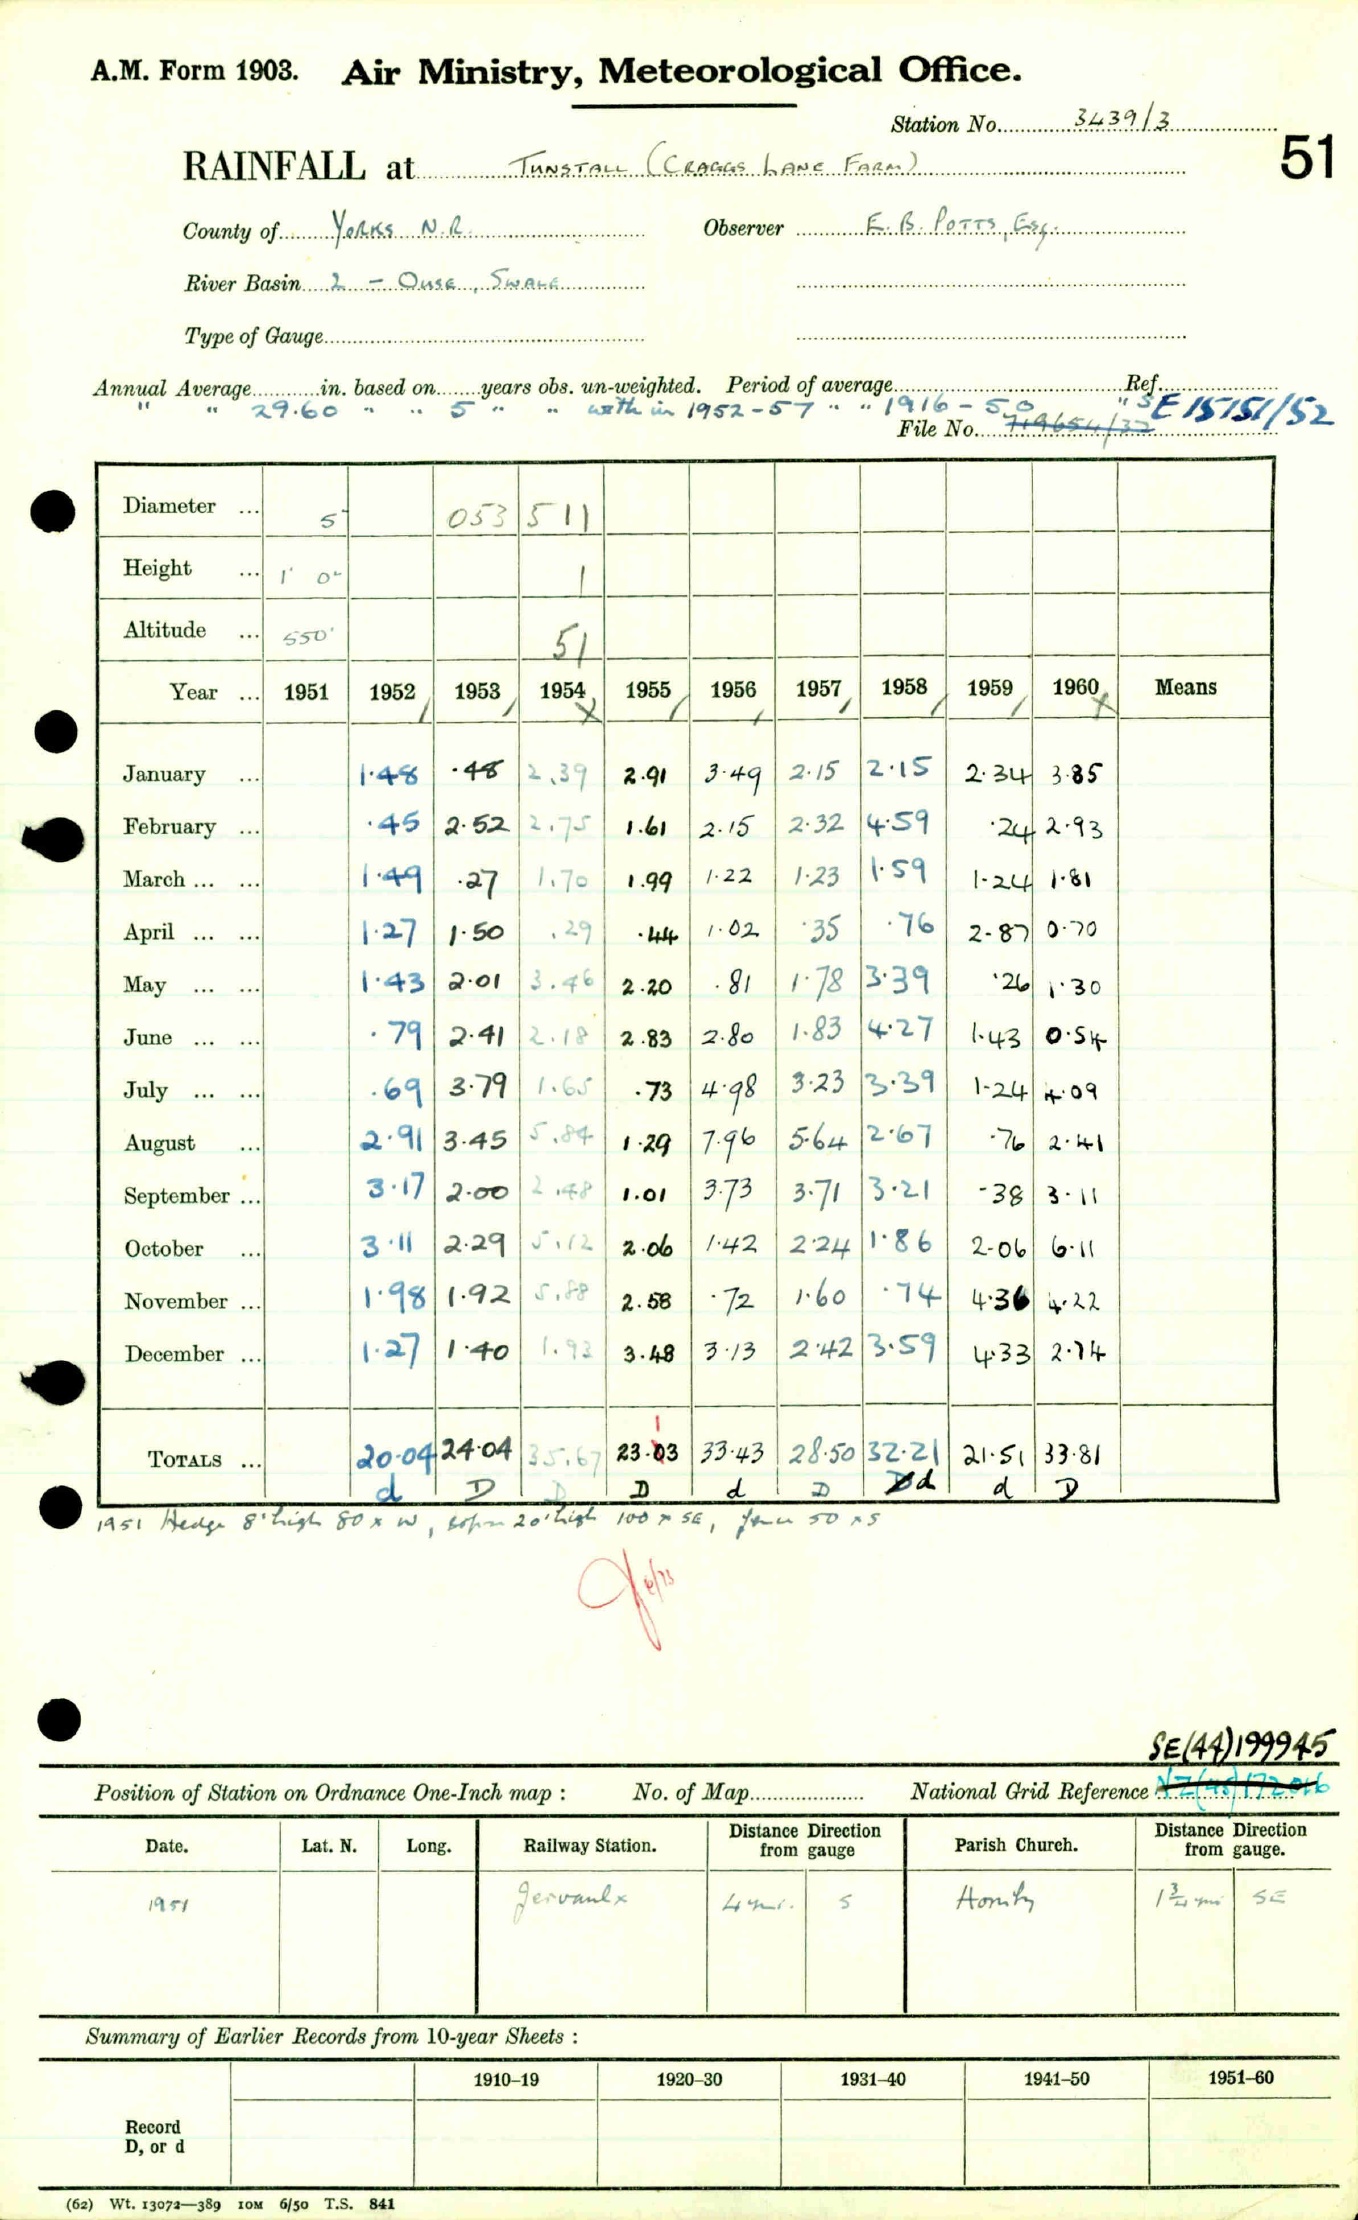 A.M. Form 1903. Air Ministry, Meteorological Office.
Station No. 3439/3
51
RAINFALL at TUNSTALL (CRAGGS LANE FARM)
County of YORKS N.R. Observer E.B. POTTS, Esq.
River Basin 2 - OUSE, SWALE
Type of Gauge
Annual Average in. based on years obs. un-weighted. Period of average Ref.
" " 29.60 " " 5 " " with in 1952-57 " " 1916-50 "
File No. 719654/32 SE 15151/52
Diameter ... 5" 053 511
Height ... 1' 0" 1
Altitude ... 550' 51
Year ... 1951 1952 1953 1954 1955 1956 1957 1958 1959 1960 Means
January ... 1.48 .48 2.39 2.91 3.49 2.15 2.15 2.34 3.85
February ... .45 2.52 2.75 1.61 2.15 2.32 4.59 .24 2.93
March ... ... 1.49 .27 1.70 1.99 1.22 1.23 1.59 1.24 1.81
April ... ... 1.27 1.50 .29 .44 1.02 .35 .76 2.87 0.70
May ... ... 1.43 2.01 3.46 2.20 .81 1.78 3.39 .26 1.30
June ... ... .79 2.41 2.18 2.83 2.80 1.83 4.27 1.43 0.54
July ... ... .69 3.79 1.65 .73 4.98 3.23 3.39 1.24 4.09
August ... 2.91 3.45 5.84 1.29 7.96 5.64 2.67 .76 2.41
September ... 3.17 2.00 2.48 1.01 3.73 3.71 3.21 .38 3.11
October ... 3.11 2.29 5.12 2.06 1.42 2.24 1.86 2.06 6.11
November ... 1.98 1.92 5.88 2.58 .72 1.60 .74 4.36 4.22
December ... 1.27 1.40 1.93 3.48 3.13 2.42 3.59 4.33 2.74
1
TOTALS ... 20.04 24.04 35.67 23.03 33.43 28.50 32.21 21.51 33.81
d D D D d D D d d D
1951 Hedge 8' high 80 x W, 20' high 100 x SE, 50 x S
SE(44)199945
Position of Station on Ordnance One-Inch map : No. of Map National Grid Reference NZ(45)172016
Date. Lat. N. Long. Railway Station. Distance Direction from gauge Parish Church. Distance Direction from gauge.
1951 Jervaulx 4 mi. S Hornby 1 3/4 mi SE
Summary of Earlier Records from 10-year Sheets :
1910–19 1920–30 1931–40 1941–50 1951–60
Record
D, or d
(62) Wt. 13072—389 10M 6/50 T.S. 841